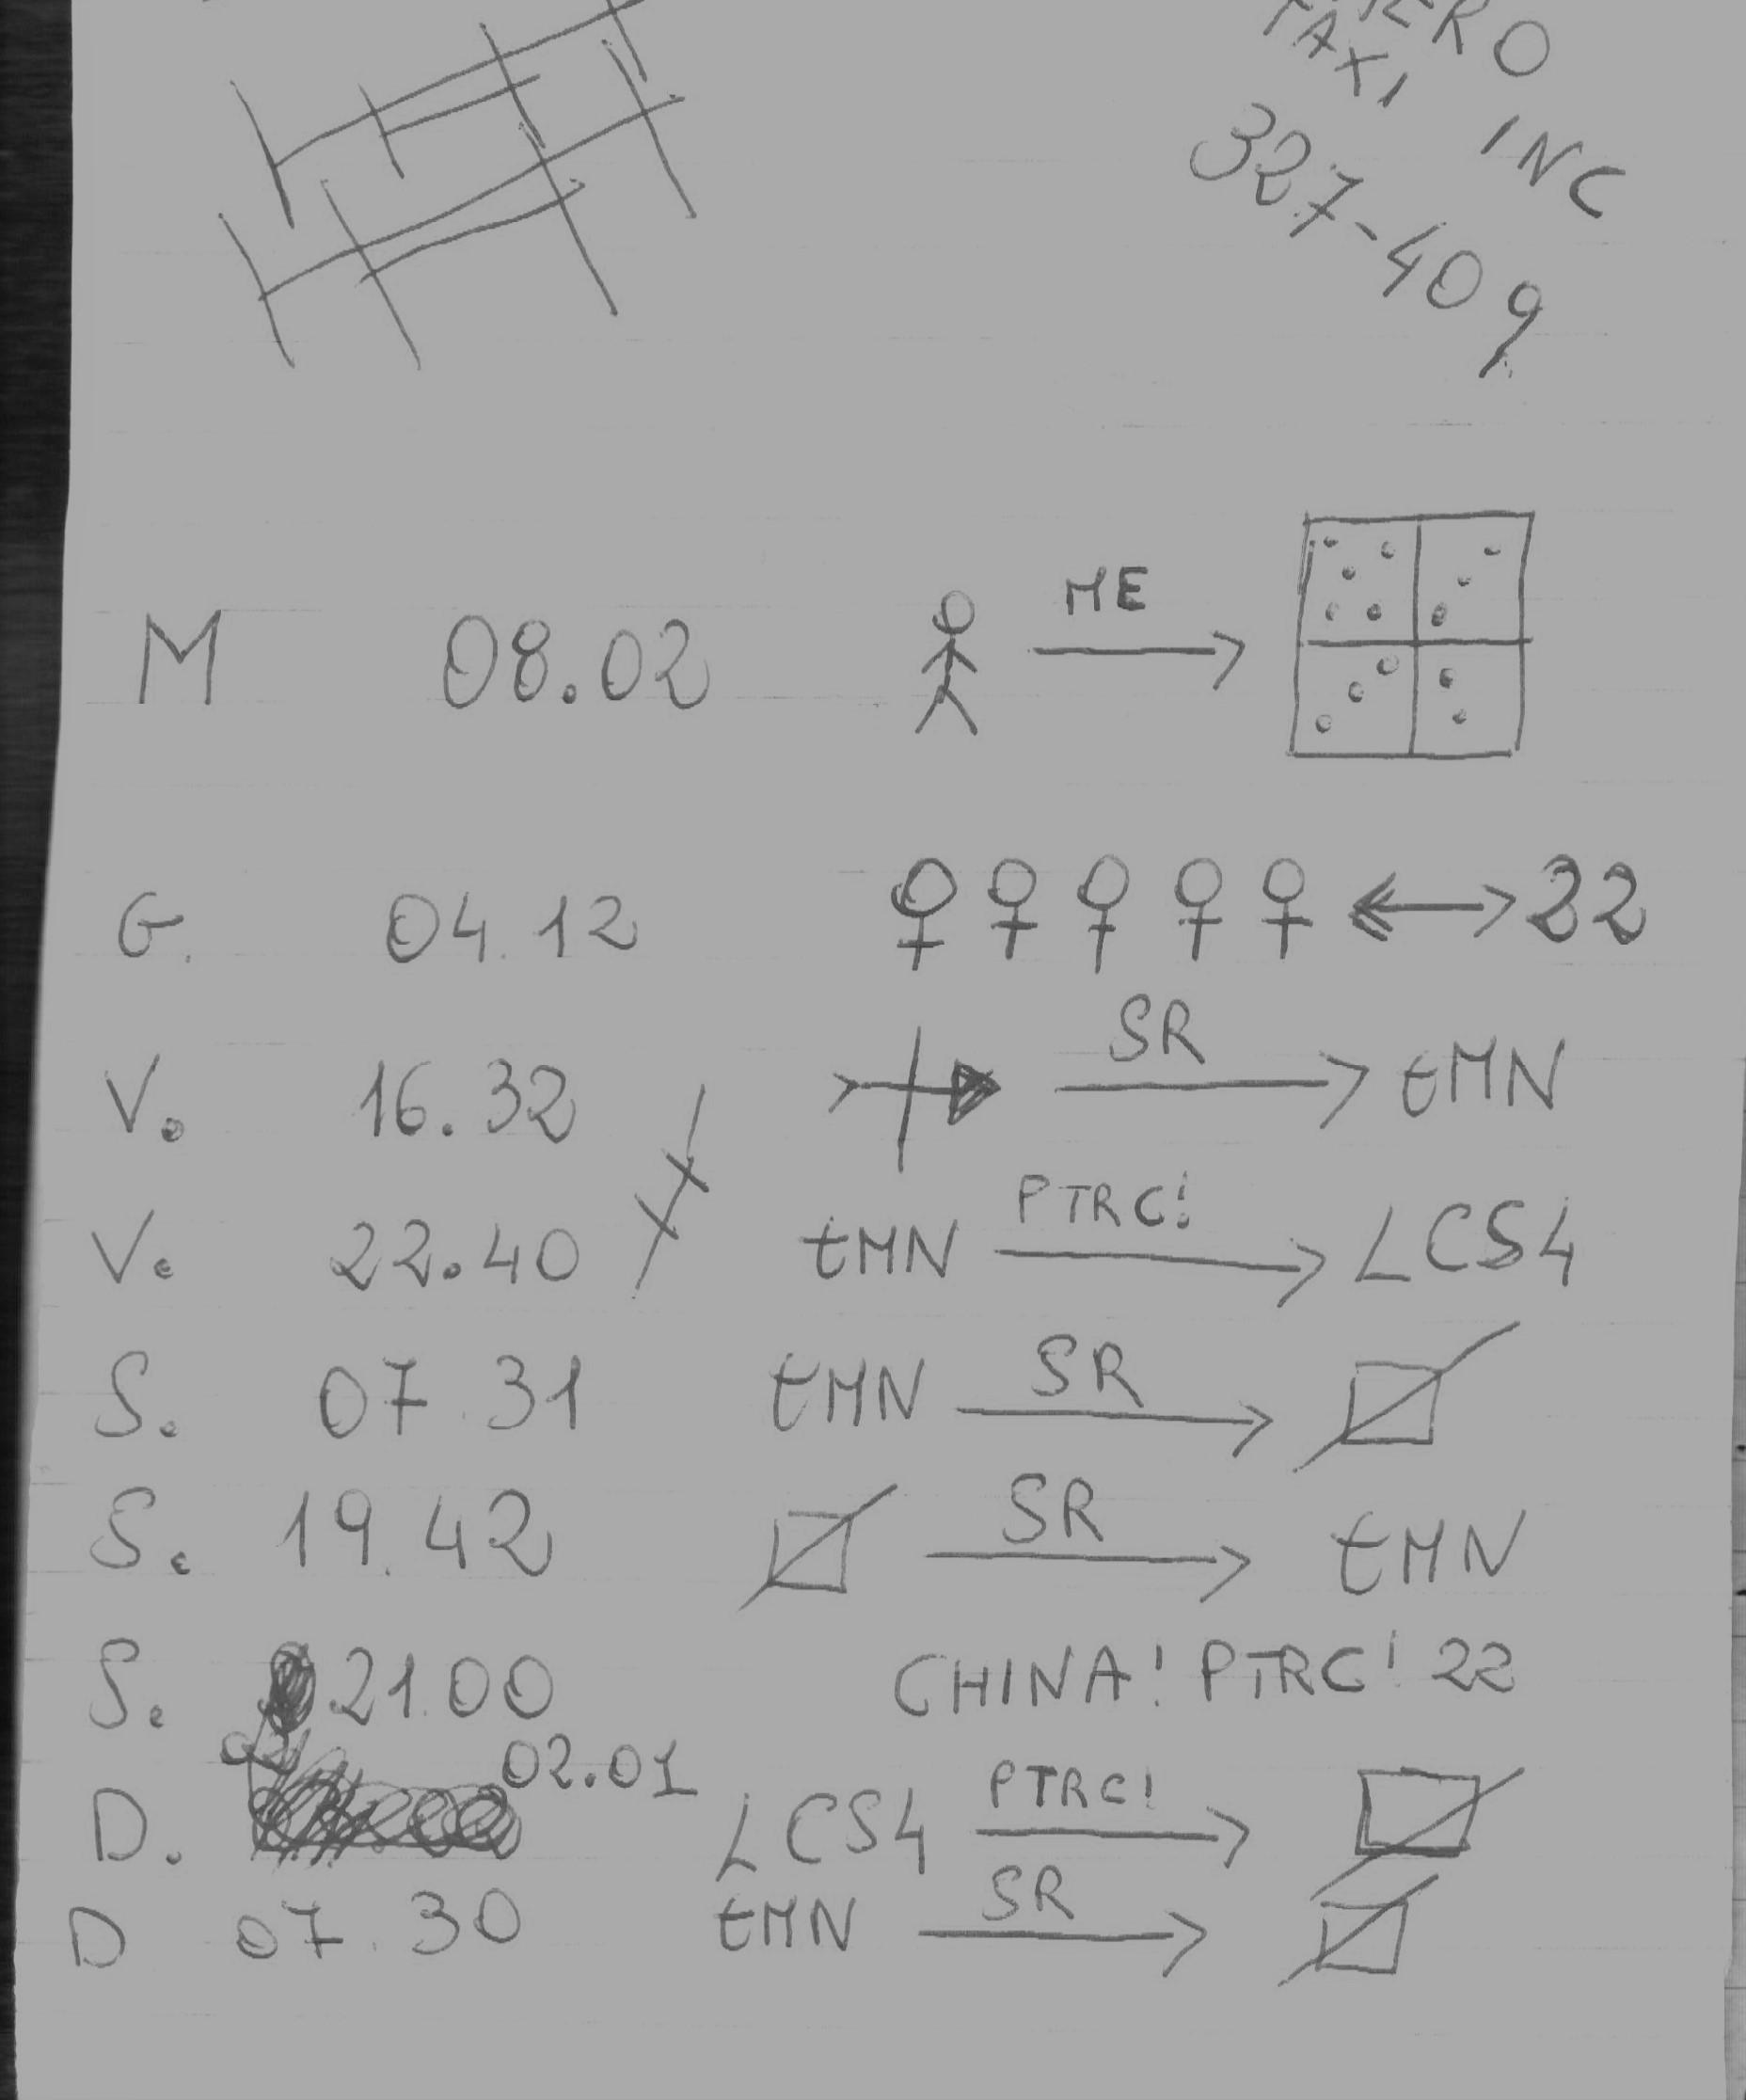 TAXI INC
327-409
M 08.02 ME
G. 04.12 22
V. 16.32 SR tMN
V. 22.40 tMN PTRC! LCS4
S. 07.31 tMN SR
S. 19.42 SR tMN
S. 21.00 CHINA! PTRC! 22
D. 02.01 LCS4 PTRC!
D 07.30 tMN SR